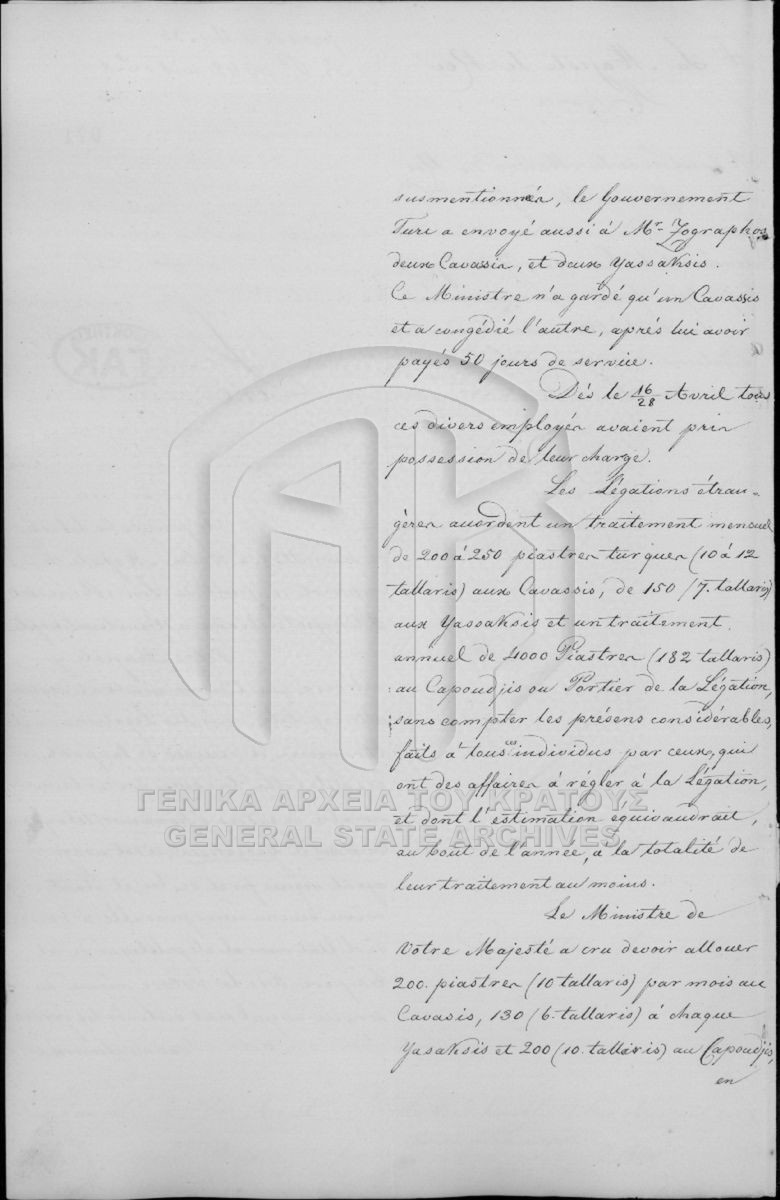 susmentionnés, le Gouvernement
Turc a envoyé aussi à Mr. Zographos
deux Cavassis, et deux Yassaksis.
Ce Ministre n'a gardé qu'un Cavassis
et a congédié l'autre, après lui avoir
payés 50 jours de service.
Dès le 16/28 Avril tous
ces divers employés avaient pris
possession de leur charge.
Les Légations étran-
gères accordent un traitement mensuel
de 200 à 250 piastres turques (10 à 12
tallaris) aux Cavassis, de 150 (7. tallaris)
aux Yassaksis et un traitement
annuel de 4000 Piastres (182 tallaris)
au Capoudjis ou Portier de la Légation,
sans compter les présens considérables,
faits à tous ces individus par ceux, qui
ont des affaires à régler à la Légation,
et dont l'estimation equivaudrait,
au bout de l'année, a la totalité de
leur traitement au moins.
Le Ministre de
Votre Majesté a cru devoir allouer
200. piastres (10 tallaris) par mois au
Cavasis, 130 (6. tallaris) à chaque
Yasaksis et 200 (10. tallaris) au Capoudjis,
en
ΓΕΝΙΚΑ ΑΡΧΕΙΑ ΤΟΥ ΚΡΑΤΟΥΣ
GENERAL STATE ARCHIVES